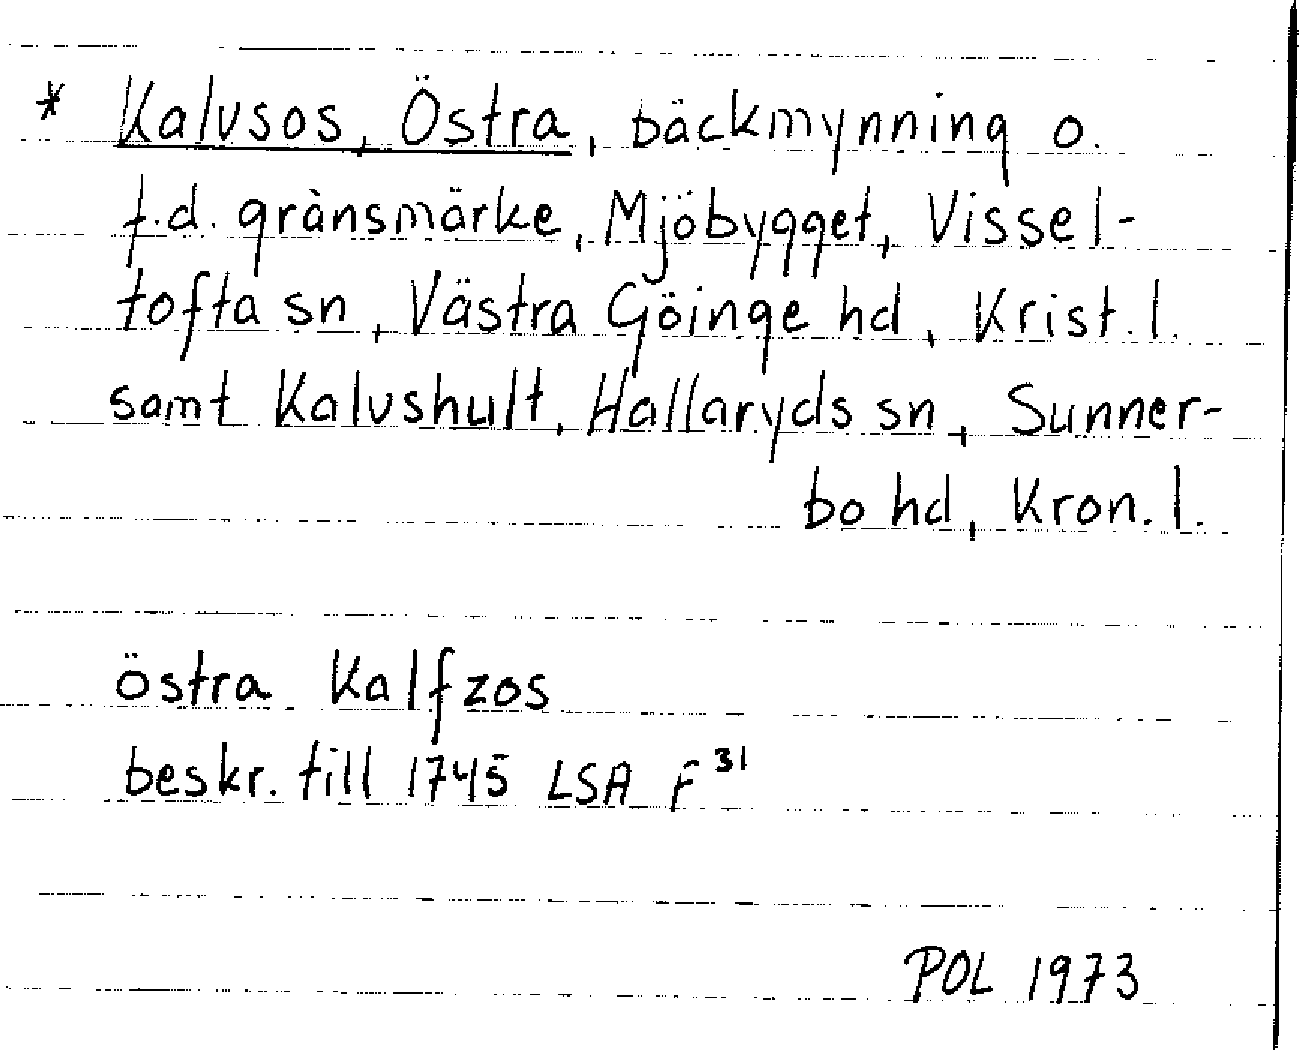 * Kalvsos, Östra, bäckmynning o.
f.d. gränsmärke, Mjöbygget, Vissel-
tofta sn, Västra Göinge hd, Krist. l.
samt Kalvshult, Hallaryds sn, Sunner-
bo hd, Kron. l.
östra Kalfzos
beskr. till 1745 LSA F³¹
POL 1973